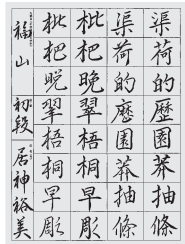 渠荷的歷園莽抽條
渠荷的歷園莽抽條
枇杷晚翠梧桐早彫
枇杷晚翠梧桐早彫
福山 初段 居神裕美